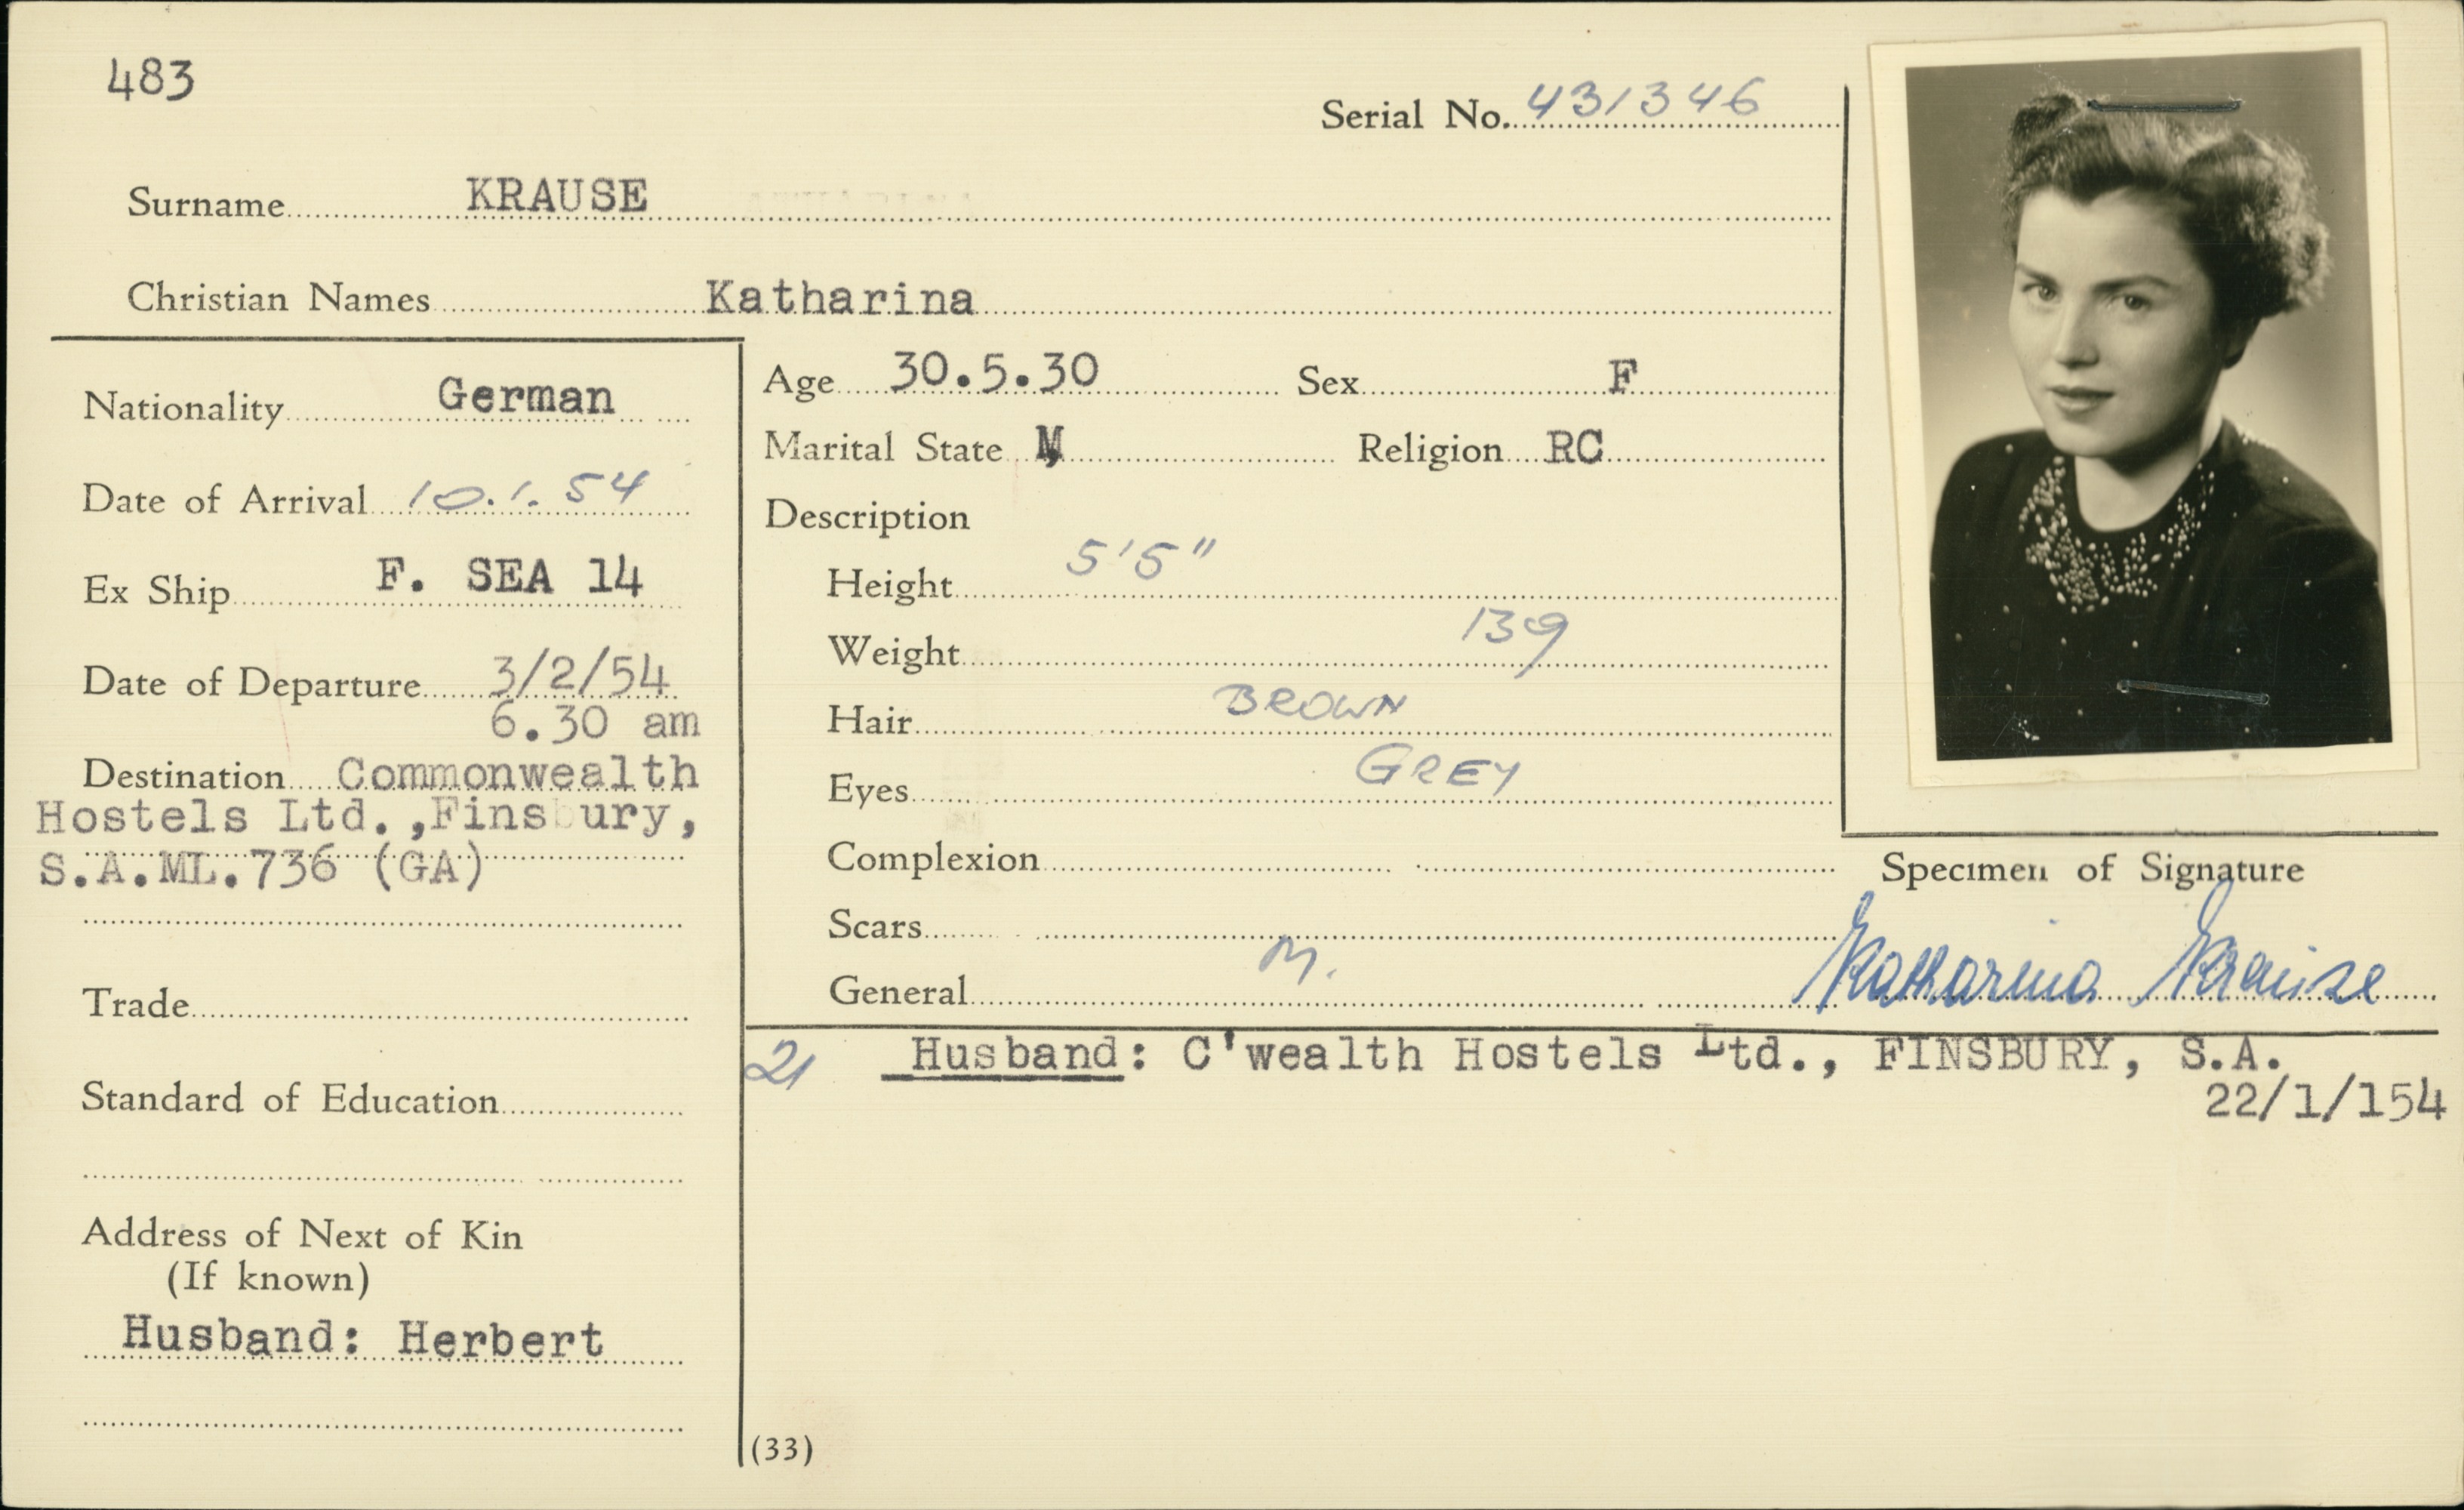 483
Serial No. 431346
Surname KRAUSE
Christian Names Katharina
Nationality German
Date of Arrival 10.1.54
Ex Ship F. SEA 14
Date of Departure 3/2/54
6.30 am
Destination Commonwealth
Hostels Ltd.,Finsbury,
S.A.ML.736 (GA)
Trade
Standard of Education
Address of Next of Kin
(If known)
Husband: Herbert
Age 30.5.30 Sex F
Marital State M Religion RC
Description
Height 5'5"
Weight 139
Hair BROWN
Eyes GREY
Complexion
Scars
General M.
Specimen of Signature
Katharina Krause
21 Husband: C'wealth Hostels Ltd., FINSBURY, S.A.
22/1/154
(33)